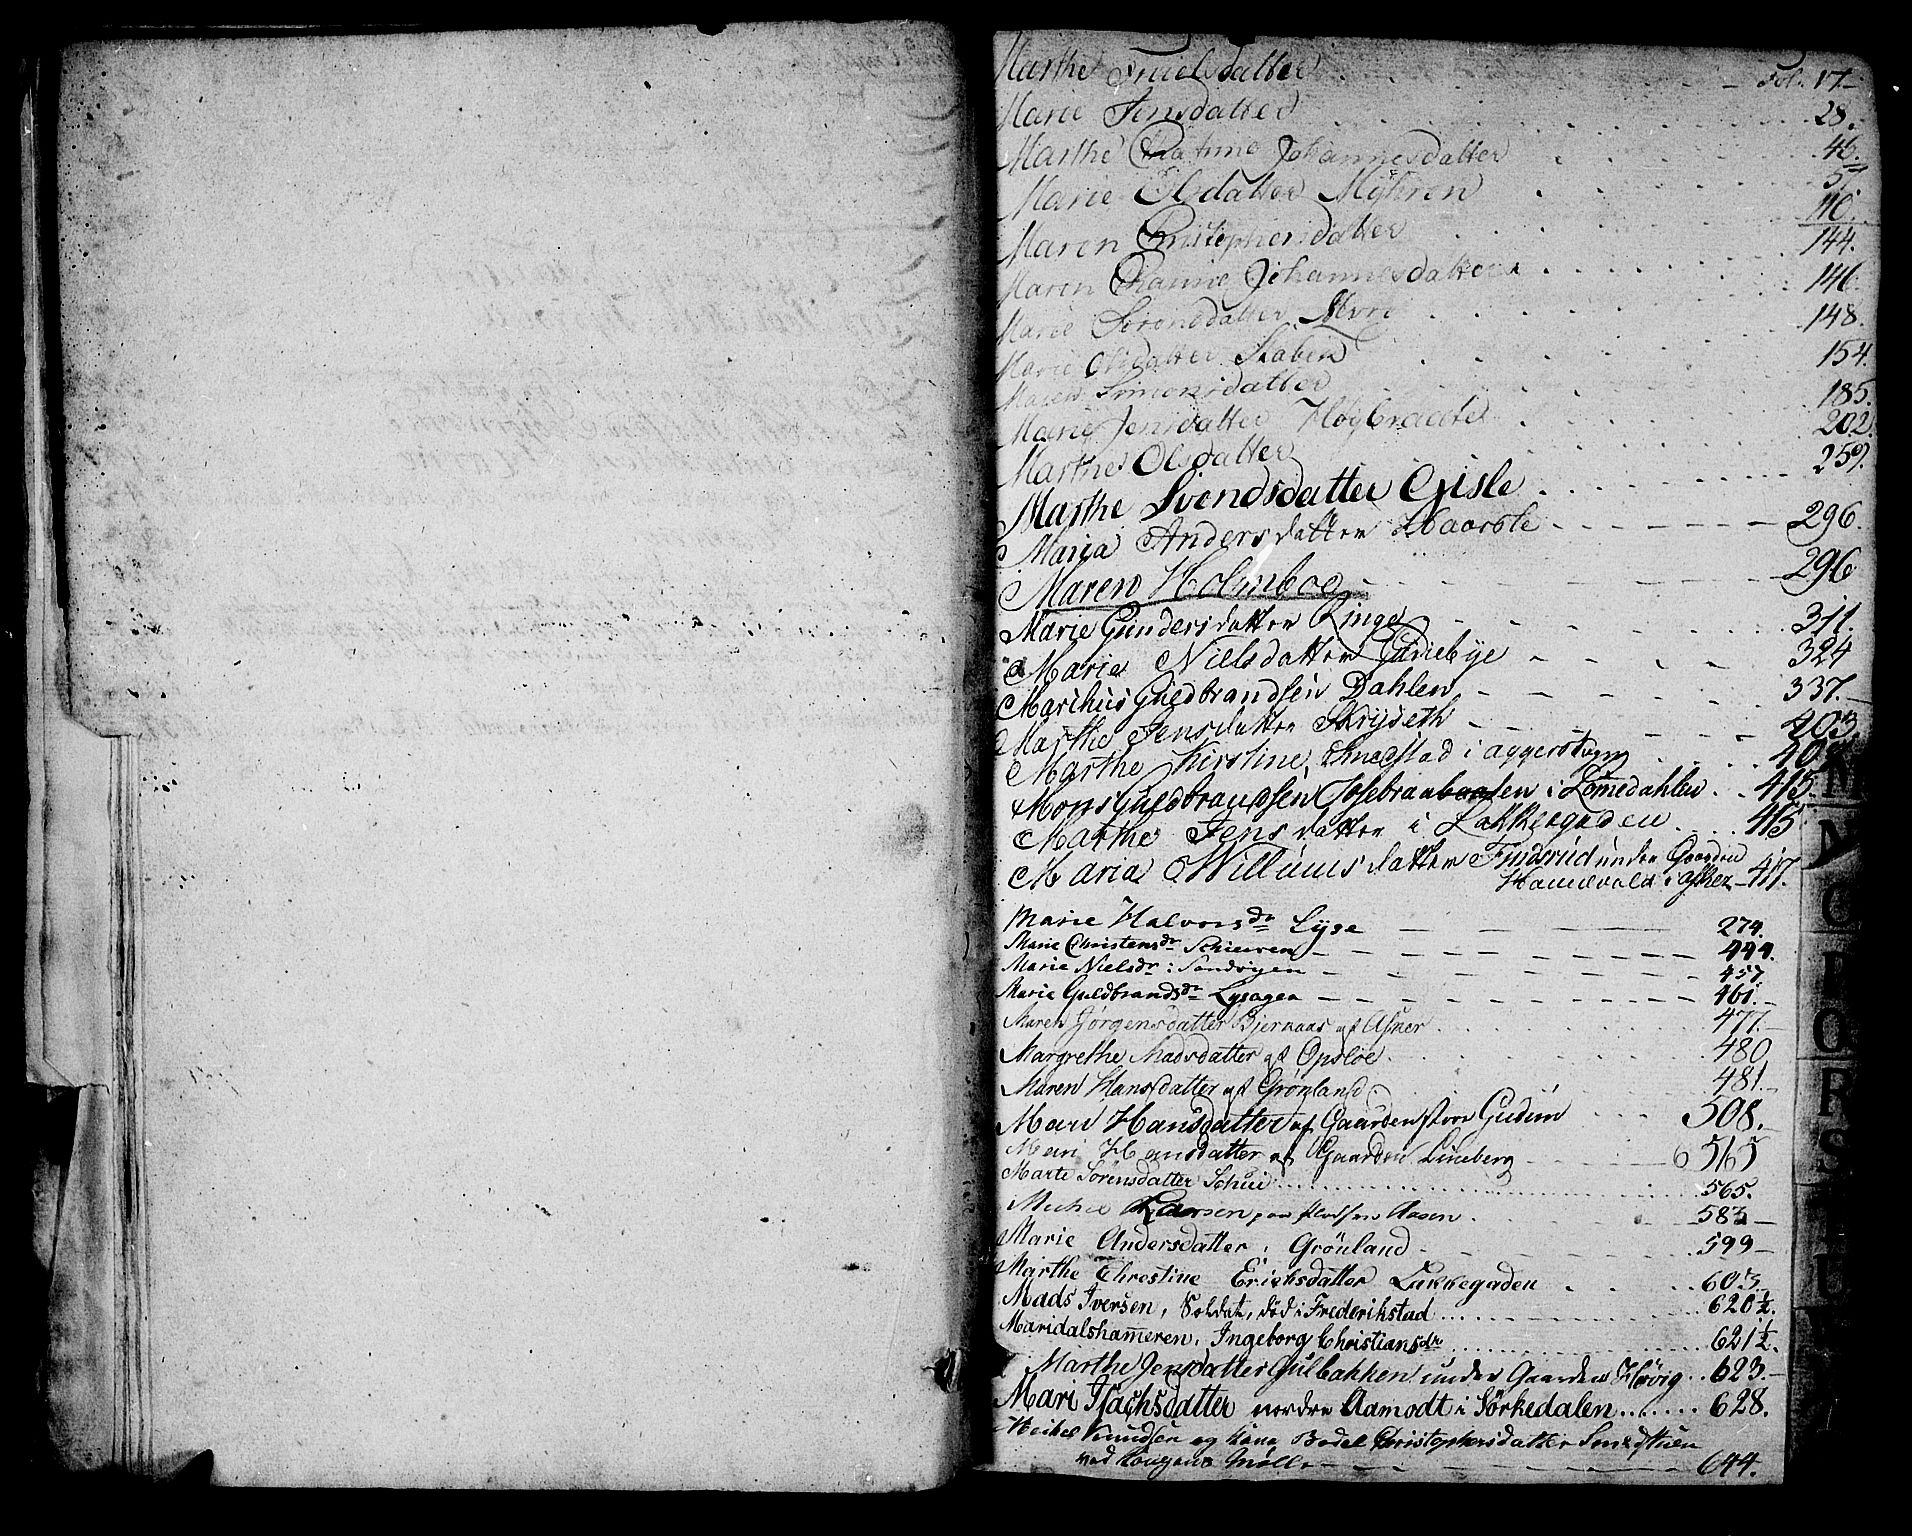 Marthe Truelsdatter . . . Fol. 17.
Marie Jensdatter . . . 28.
Marthe Cathrine Johannesdatter . . 46.
Marie Olsdatter Myhren . . 57.
Maren Christophersdatter . . . 110.
144.
Maren Johannesdatter . . . 146.
Marie Sörensdatter . . . 148.
Marie Olsdatter Staben . . . 154.
Maren Simonsdatter . . . 185.
Marie Jensdatter Høybraate . . . 202.
Marthe Olsdatter . . . 259.
Marthe Svendsdatter Gisle . . .
Maria Andersdatter - - - 296.
Maren Holmboe - - - 296
Marie Gundersdatter Ringe - - - 311.
Marie Nielsdatter - - - 324
Marthus Guldbrandsen Dahlen - - - 337.
Marthe Jensdatter - - - 403
Marthe Kirstine Knestad i . . .
Mons Guldbrandsen i Lomedahlen . . 415.
Marthe Jensdatter i Lakkegaden . . . 415
Maria Willumsdatter Findsrud under Gaarden
i Asker - 417.
Marie Halvorsdr Lyse - - - 274.
Marie Christensdr - - - 444.
Marie Nielsdr i Sandvigen - - - 457.
Marie Guldbrandsdr Lysagen - - - 461.
Maren Jörgensdatter Bjernaas af Asker . . . 477.
Margrethe Madsdatter af Opsloe . . . 480
Maren Hansdatter af Grönland . . . 481.
Mari Hansdatter af Gaarden store Gudim . . . 508.
Mari Hansdatter af Gaarden Lineberg - - - 565
Marte Sörensdatter Schui . . . 565.
Michel Larsen paa Aasen . . . 583
Marie Andersdatter i Grönland - . . . 599
Marthe Christine Erichsdatter Lakkegaden . . 605.
Mads Iversen, Soldat, död i Frederikstad . . . 620½.
Maridalshammeren, Ingeborg Christiansdr . . . 621½.
Marthe Jensdatter Gulbakken under Gaarden Hövig . . 623.
Mari Isachsdatter nordre Aamodt i Sörkedalen . . . 628.
Michel Knudsen og Kone Bodel Christophersdatter Smedstuen
ved Kongens Mölle - - - 644.
M
N
O
P
Q
R
S
T
U